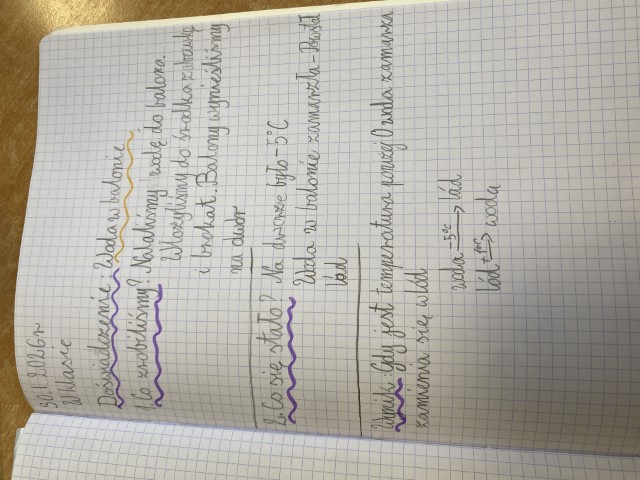 30.1.2026r
W klasie
Doświadczenie: Woda w balonie
1. Co zrobiliśmy? Nalaliśmy wodę do balona.
Włożyliśmy do środka zabawkę
i brokat. Balony wynieśliśmy
na dwór
2. Co się stało? Na dworze było -5°C
Woda w balonie zamarzła - Powstał
lód
Wynik: Gdy jest temperatura poniżej 0 woda zamarza
zamienia się w lód
woda -5°C → lód
lód +10°C → woda